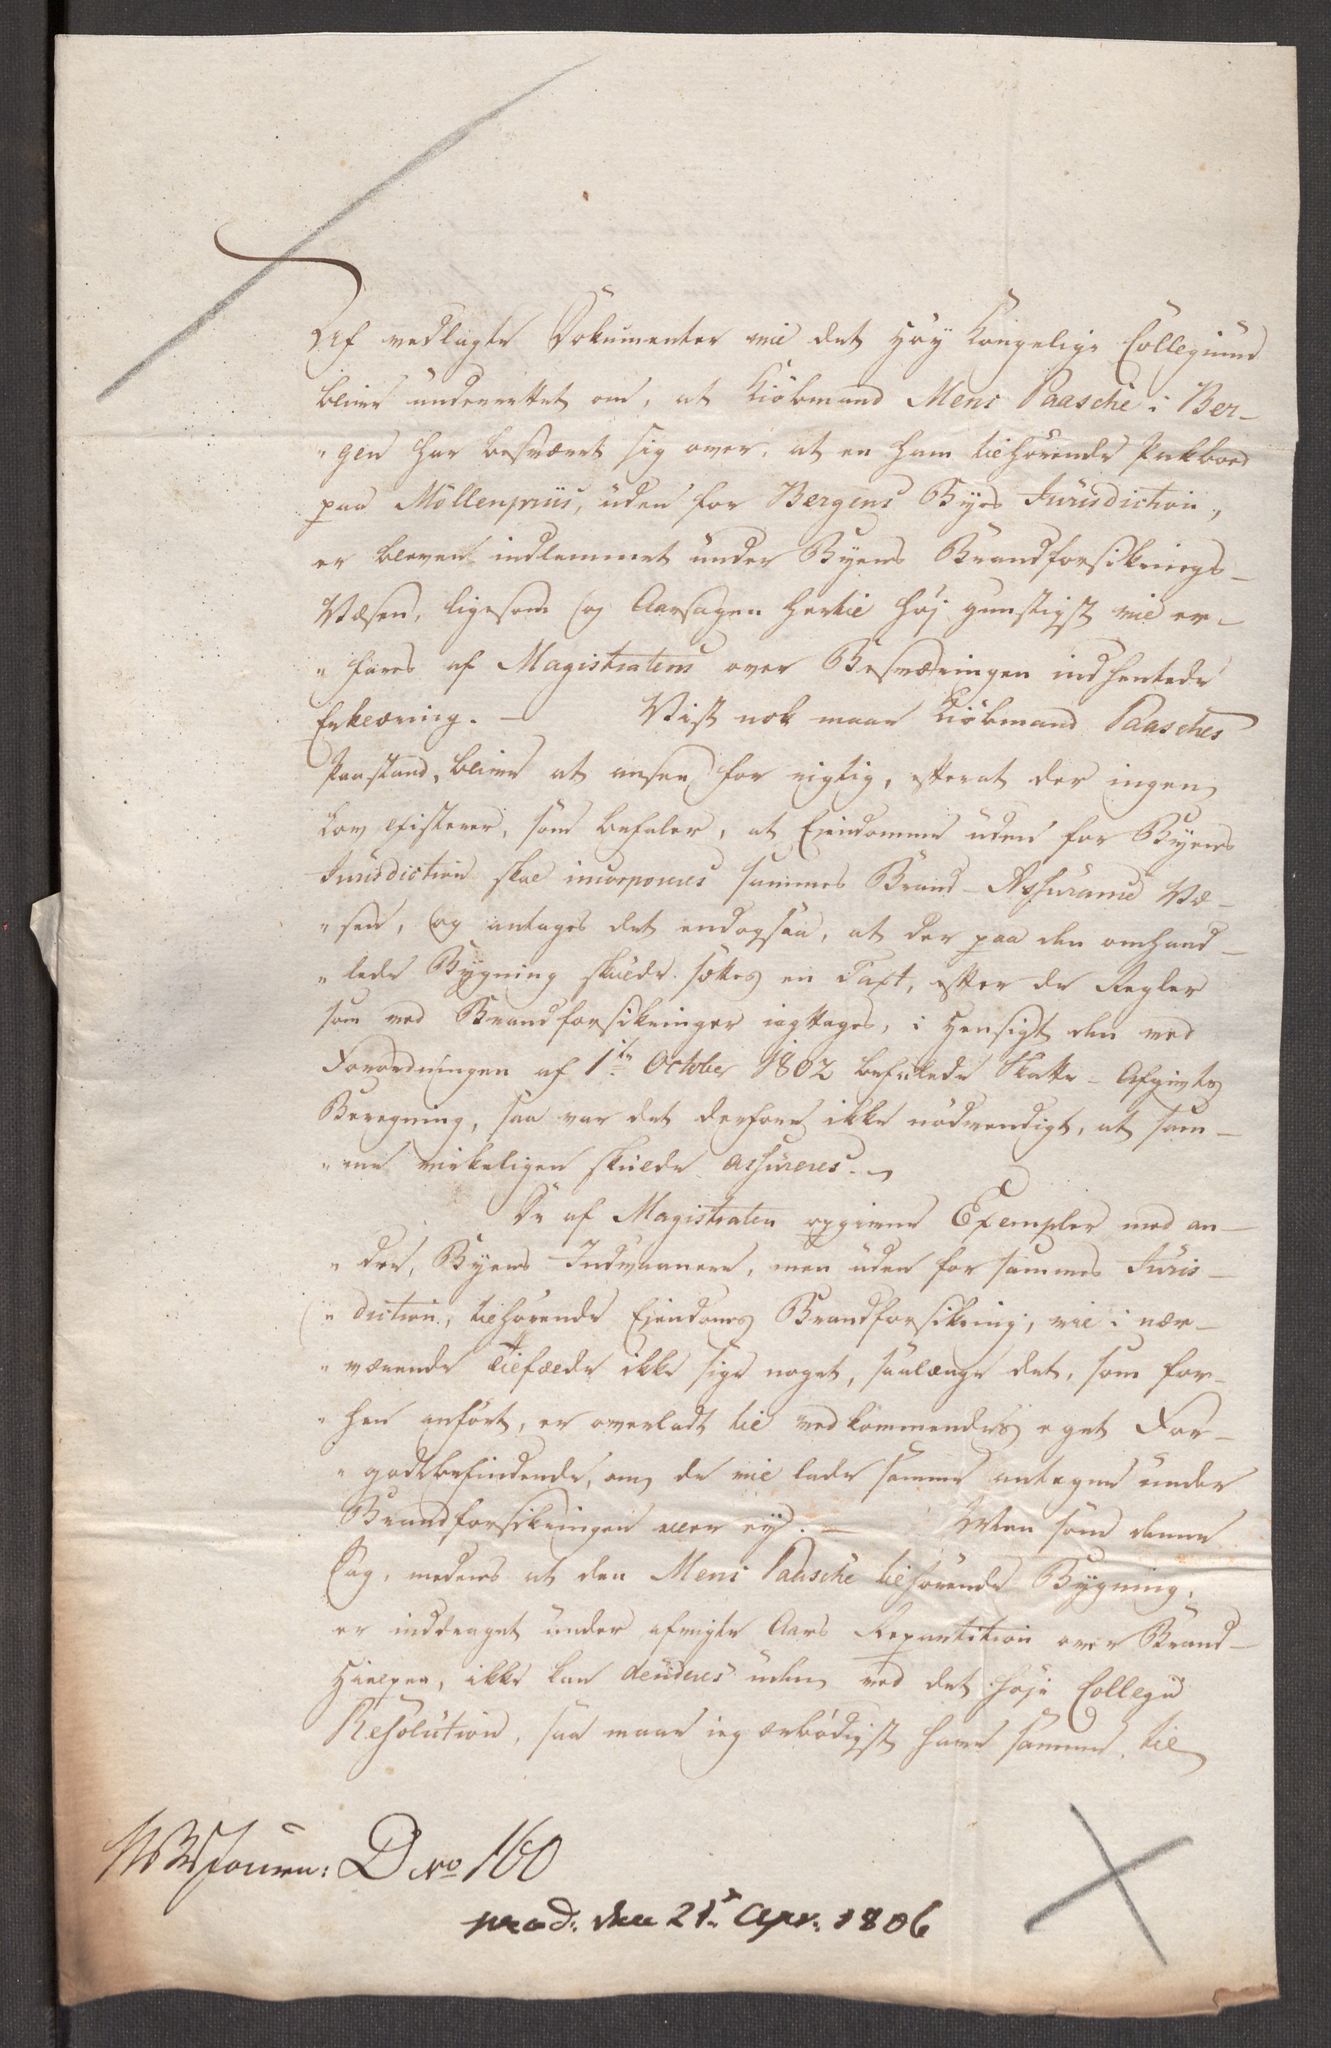 Af vedlagte Dokumenter vil det høy Kongelige Collegium
blive underrettet om, at Kiøbmand Mens Paasche i Ber-
"gen har besværet sig over, at en ham tilhørende Pakboed
paa Møllenpriis, uden for Bergens Byes Jurisdiction,
er bleven indlemmet under Byens Brandforsikrings-
Væsen, ligesom og Aarsagen hertil høj gunstigst vil er-
"fares af Magistratens over Besværingen indhentede
Erklæring. — Vist nok maae Kiøbmand Paasches
Paastand, blive at ansee for rigtig, efterat der ingen
Lov existerer, som befaler, at Eiendomme uden for Byens
Jurisdiction skal incorporeres sammes Brand-Assurance Væ-
"sen, og antages det endogsaa, at der paa den omhand-
"lede Bygning skulde sættes en Taxt, efter de Regler
som ved Brandforsikringer iagttages, i Hensigt den ved
Forordningen af 1te October 1802 befalede Skatte-Afgivts
Beregning, saa var det derfore ikke nødvendigt, at sam-
"me virkeligen skulde assureres. —
De af Magistraten opgivne Exempler med an-
"dre, Byens Indvaanere, men uden for sammes Juris-
"diction, tilhørende Eiendoms Brandforsikring, vil i nær-
"værende Tilfælde ikke sige noget, saalænge det, som for-
"hen anført, er overladt til vedkommendes eget For-
"godtbefindende, om de vil lade samme antegne under
Brandforsikringen eller ey. — Men som denne
Sag, medens at den Mens Paasche tilhørende Bygning,
er inddraget under afvigte Aars Repartition over Brand-
Hielpen, ikke kan decideres uden ved det høje Collegii
Resolution, saa maae ieg ærbødigst have samme, til
Journ: D No 160
prod: den 21. Apr: 1806